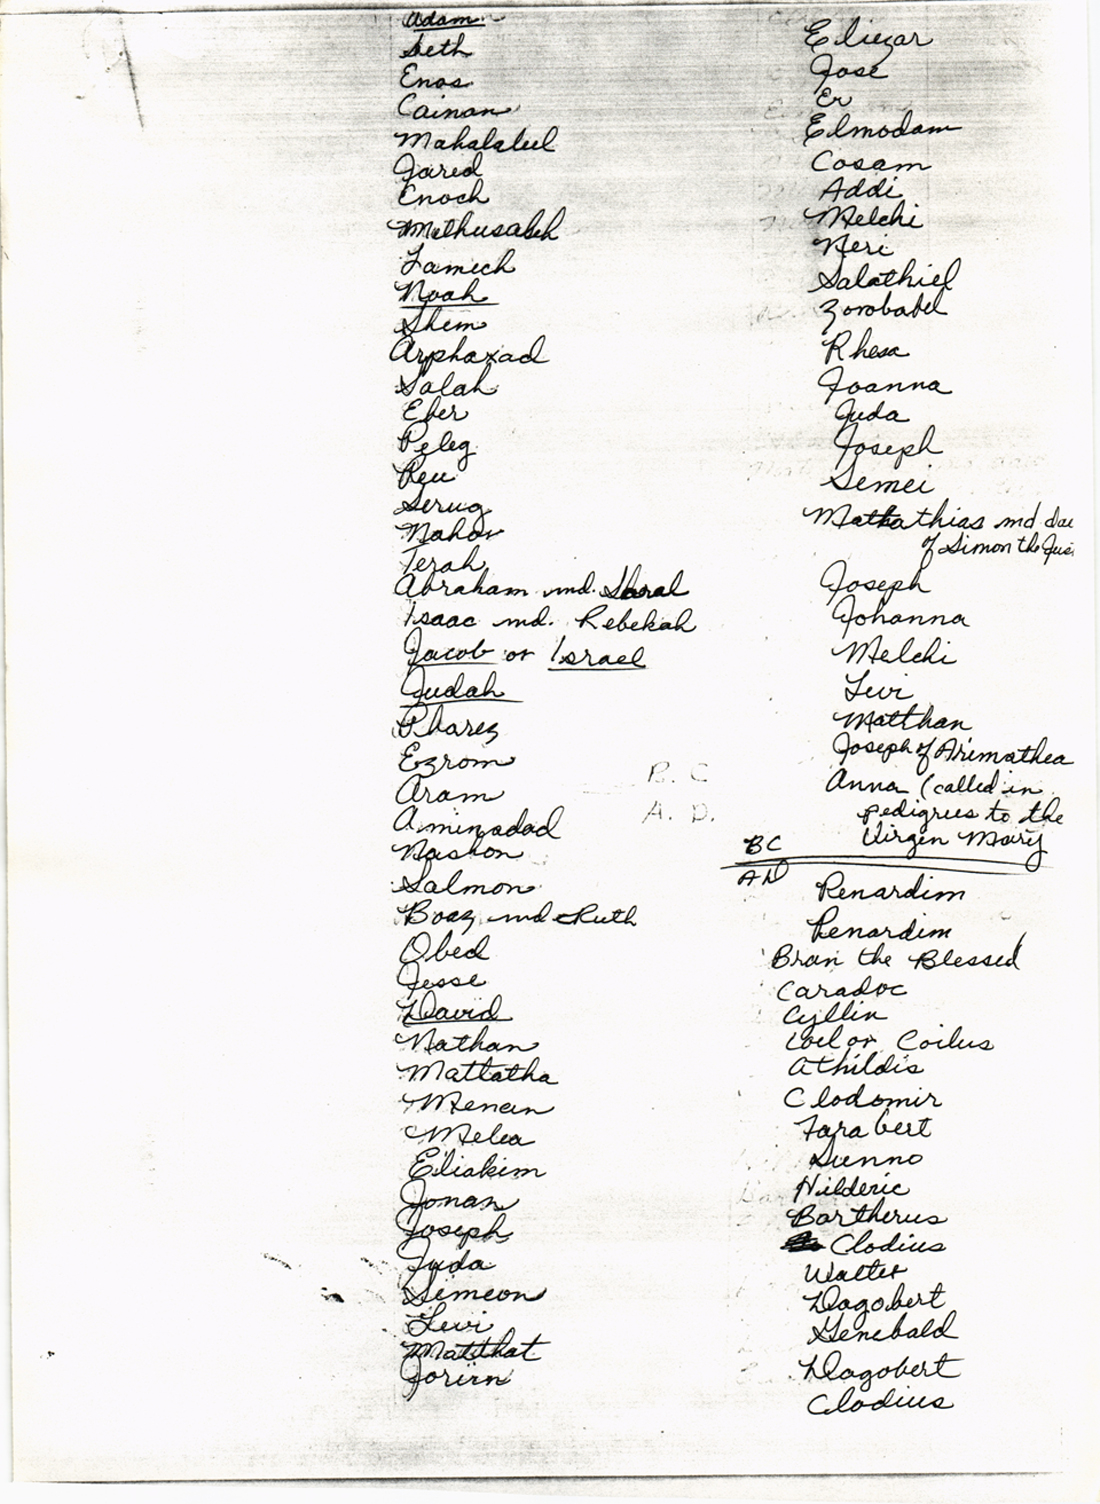 Adam
Seth
Enos
Cainan
Mahalaleel
Jared
Enoch
Methusaleh
Lamech
Noah
Shem
Arphaxad
Salah
Eber
Peleg
Reu
Serug
Nahor
Terah
Abraham md. Sarai
Isaac md. Rebekah
Jacob or Israel
Judah
Pharez
Ezrom
Aram
Aminadad
Nashon
Salmon
Boaz md Ruth
Obed
Jesse
David
Nathan
Mattatha
Menan
Melea
Eliakim
Jonan
Joseph
Juda
Simeon
Levi
Matthat
Jorim
B. C
A. D.
Eliezar
Jose
Er
Elmodam
Cosam
Addi
Melchi
Neri
Salathiel
Zorobabel
Rhesa
Joanna
Juda
Joseph
Semei
Mattathias md dau
of Simon the Jus
Joseph
Johanna
Melchi
Levi
Matthan
Joseph of Arimathea
Anna (called in
pedigrees to the
Virgen Mary
BC
AD
Penardim
Penardim
Bran the Blessed
Caradoc
Cyllin
Coel or Coilus
Athildis
Clodomir
Farabert
Sunno
Hilderic
Bartherus
Clodius
Walter
Dagobert
Genebald
Dagobert
Clodius